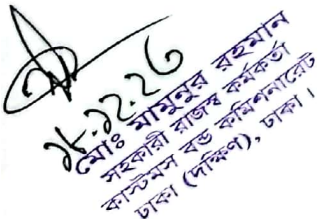 ২৮.১২.২৩
মোঃ মামুনুর রহমান
সহকারী রাজস্ব কর্মকর্তা
কাস্টমস বন্ড কমিশনারেট
ঢাকা (দক্ষিণ), ঢাকা।